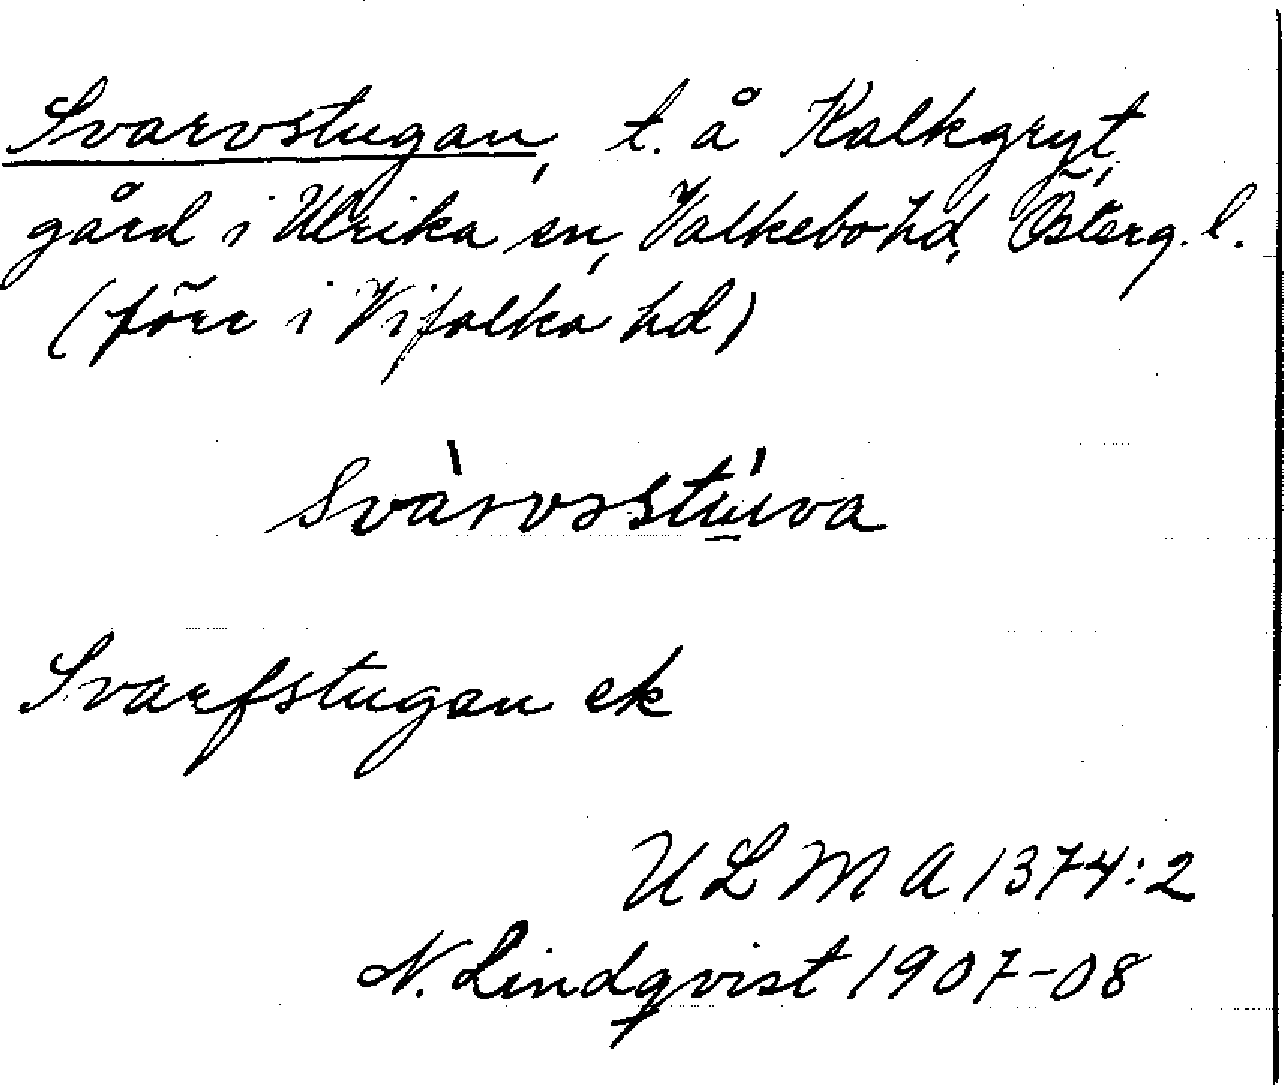 Svarvstugan, t. å Kalkgryt,
gård i Ulrika sn, Valkebo hd, Österg. l.
(förr i Vifolka hd)
Svarfstugan ek
ULMA 1374:2
N. Lindqvist 1907-08